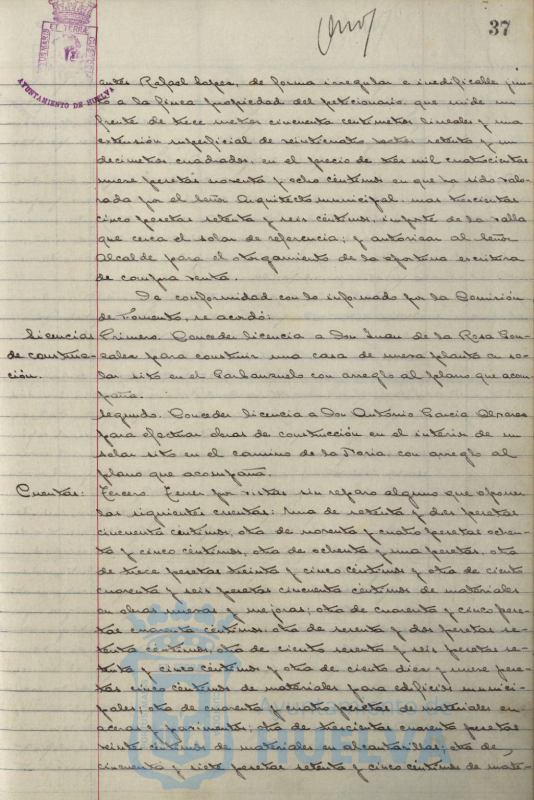 37
AYUNTAMIENTO DE HUELVA
antes Rafael López, de forma irregular e inedificable jun-
to a la finca propiedad del peticionario que mide un
frente de trece metros cincuenta centímetros lineales y una
extensión superficial de veinticuatro metros setenta y un
decímetros cuadrados, en el precio de tres mil cuatrocientas
nueve pesetas noventa y ocho céntimos en que ha sido valo-
rada por el Señor Arquitecto municipal, mas trescientas
cinco pesetas setenta y seis céntimos, importe de la valla
que cerca el solar de referencia; y autorizar al Señor
Alcalde para el otorgamiento de la oportuna escritura
de compra venta.
De conformidad con lo informado por la Comisión
de Fomento, se acordó:
licencias
de construc-
ción.
Primero. Conceder licencia a Don Juan de la Rosa Gon-
zalez para construir una casa de nueva planta en so-
lar sito en el Garbanzuelo con arreglo al plano que acom-
paña.
Segundo. Conceder licencia a Don Antonio Garcia Alvarez
para efectuar obras de construcción en el interior de un
solar sito en el camino de la Noria con arreglo al
plano que acompaña.
Cuentas:
Tercero. Tener por vistas sin reparo alguno que oponer
las siguientes cuentas: Una de setenta y dos pesetas
cincuenta céntimos, otra de noventa y cuatro pesetas ochen-
ta y cinco céntimos, otra de ochenta y una pesetas, otra
de trece pesetas treinta y cinco céntimos y otra de ciento
cuarenta y seis pesetas cincuenta céntimos de materiales
en obras nuevas y mejoras; otra de cuarenta y cinco pese-
tas cuarenta céntimos, otra de sesenta y dos pesetas se-
tenta céntimos, otra de ciento sesenta y seis pesetas se-
tenta y cinco céntimos y otra de ciento diez y nueve pese-
tas cinco céntimos de materiales para edificios munici-
pales; otra de cuarenta y cuatro pesetas de materiales en
aceras y pavimentos; otra de trescientas cuarenta pesetas
veinte céntimos de materiales en alcantarillas; otra de
cincuenta y siete pesetas setenta y cinco céntimos de mate-
HUELVA